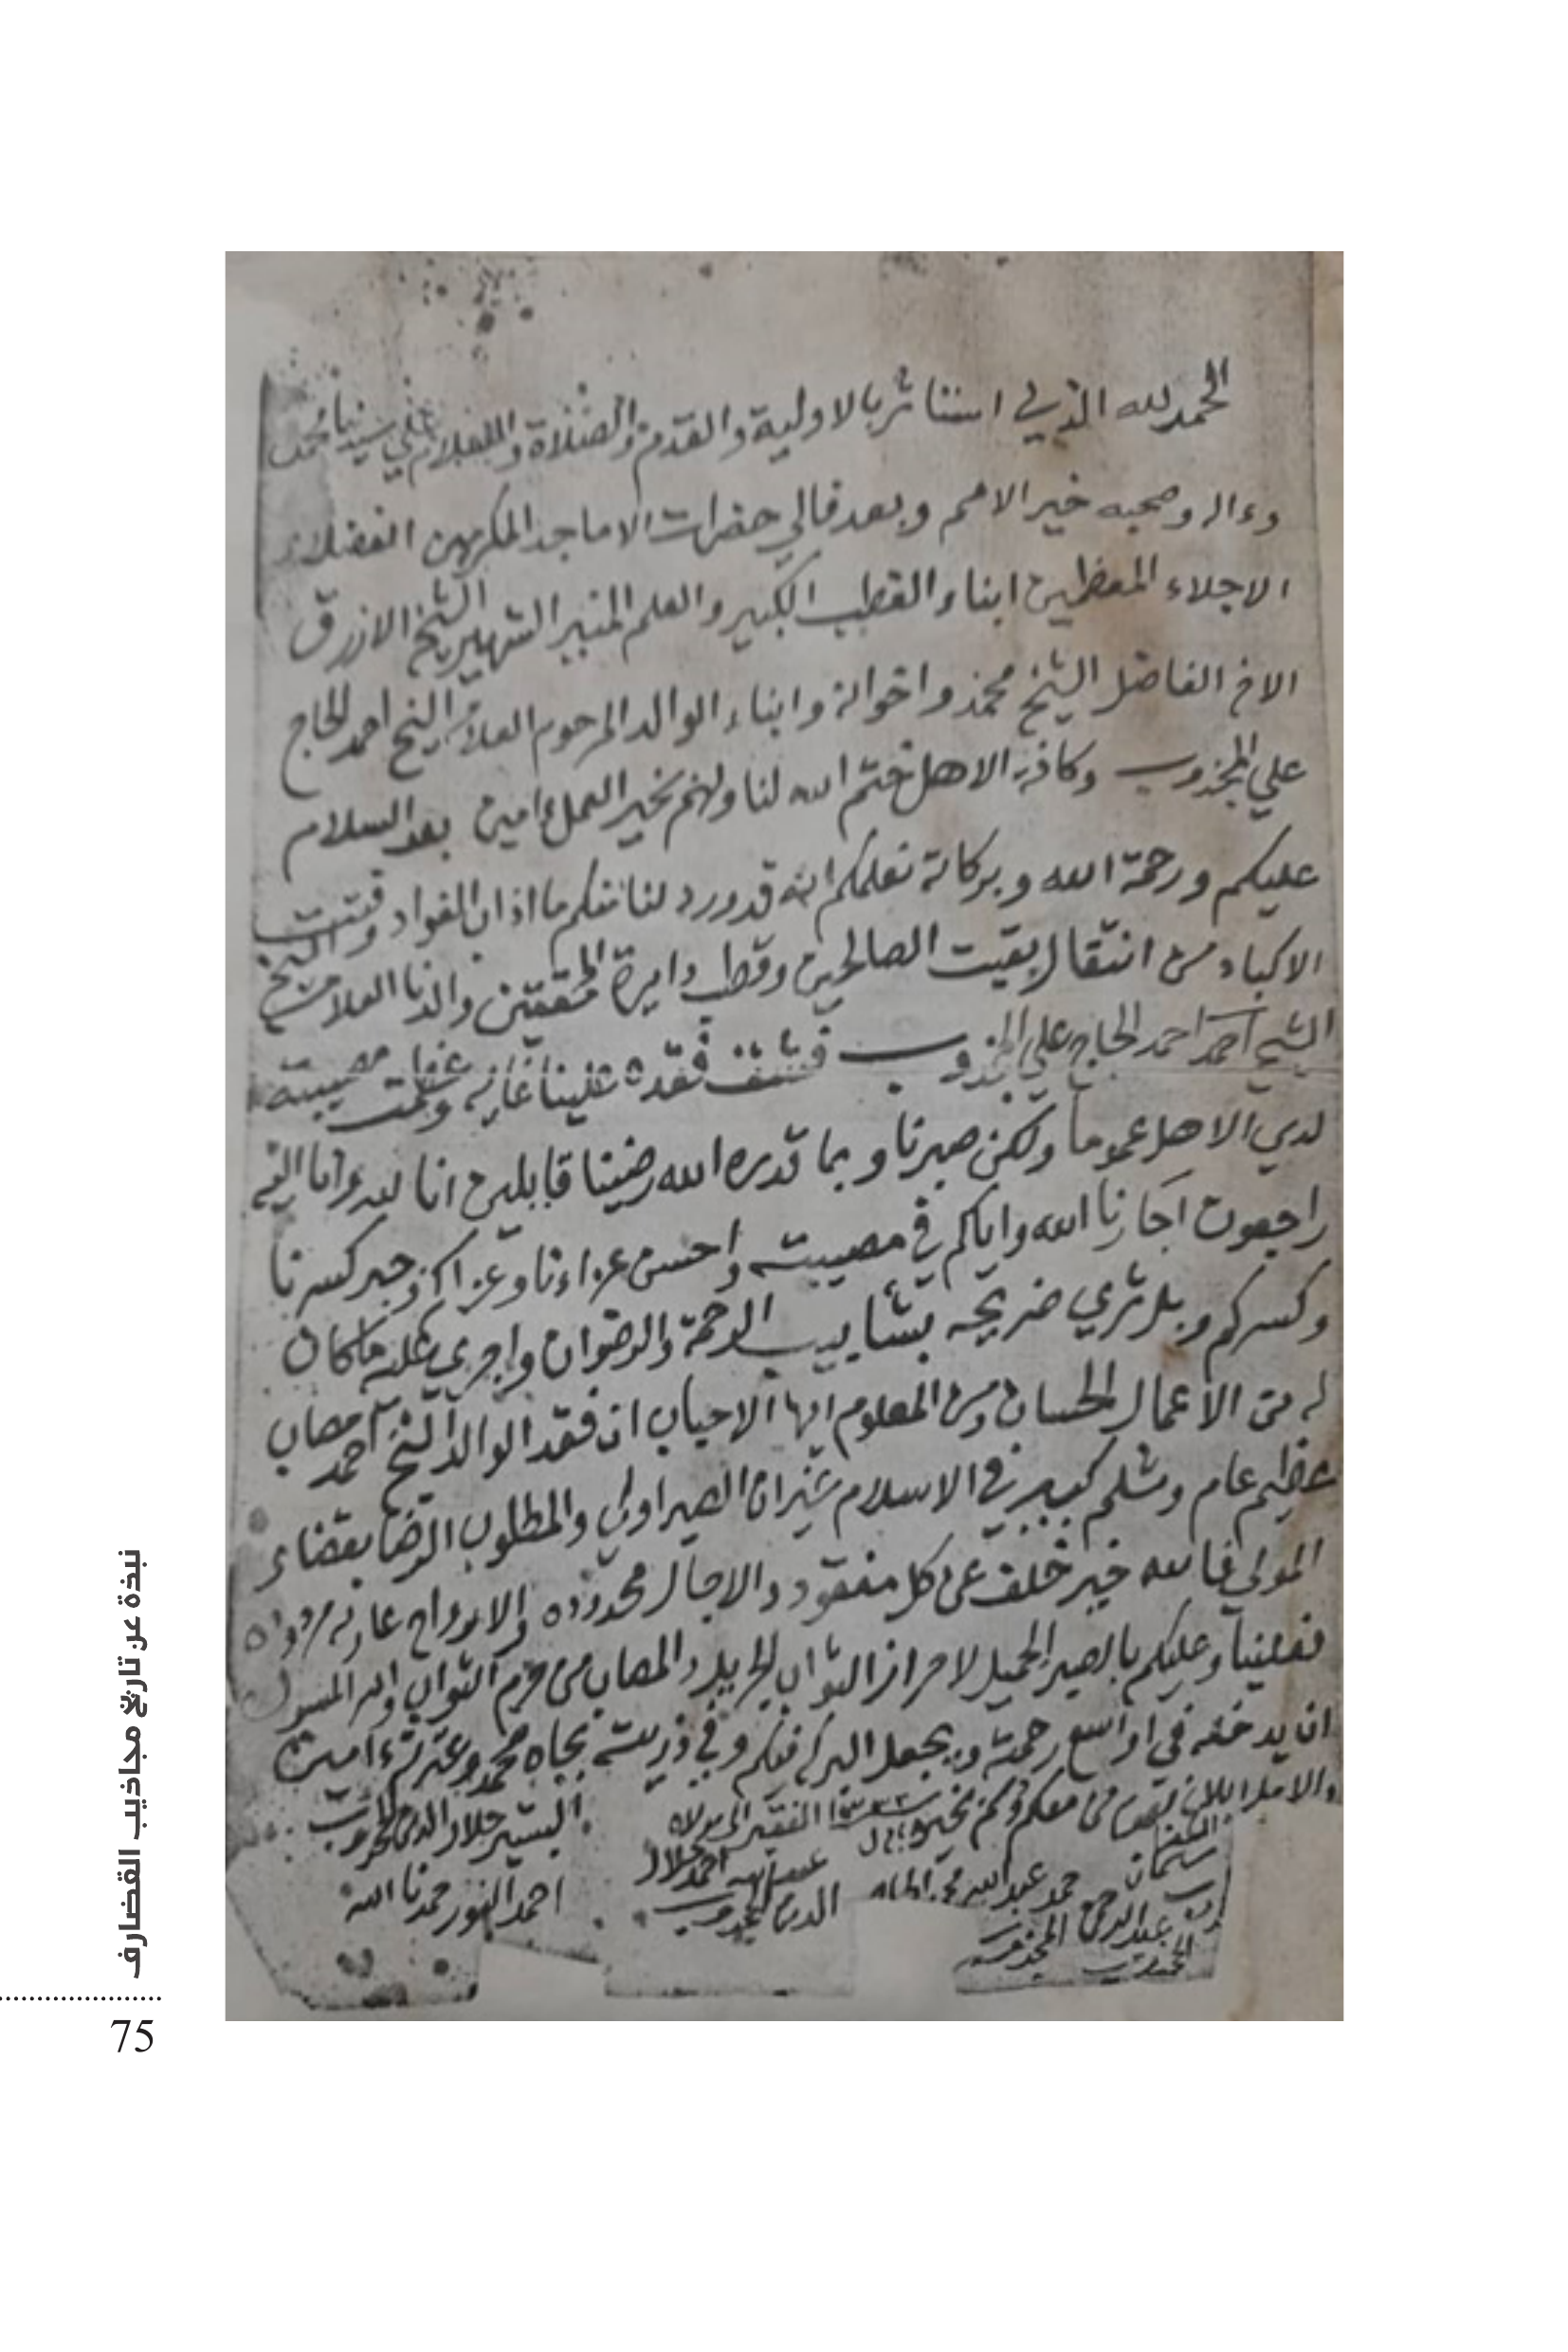 الحمد لله الذي استاثر بالاولية والقدم والصلاة والسلام علي سيدنا محمد
وءاله وصحبه خير الامم وبعد فالي حضرات الاماجد المكرمين الفضلاء
الاجلاء المعظمين ابناء القطب الكبير والعلم المنير الشهير الشيخ الازرق
الاخ الفاضل الشيخ محمد واخوانه وابناء الوالد المرحوم العلامه الشيخ احمد الحاج
علي المجذوب وكافة الاهل ختم الله لنا ولهم بخير العمل امين بعد السلام
عليكم ورحمة الله وبركاته نعلمكم انه قد ورد لنا منكم ما اذاب الفواد وفتت
الاكباد من انتقال بقيت الصالحين وقطب دايرة المحققين والدنا العلامه الشيخ
الشيخ احمد احمد الحاج علي المجذوب فشق فقده علينا غايه وعظمت مصيبته
لدي الاهل عموما ولكن صبرنا وبما قدره الله رضينا قايلين انا لله وانا اليه
راجعون اجارنا الله واياكم في مصيبته واحسن عزاءنا وعزاكم وجبر كسرنا
وكسركم وبل ثري ضريحه بشابيب الرحمة والرضوان واجري عليه ما كان
له من الاعمال الحسان ومن المعلوم ايها الاحباب ان فقد الوالد الشيخ احمد مصاب
عظيم عام وثلم كبير في الاسلام غير ان الصبر اولي والمطلوب الرضا بقضاء
المولي فالله خير خلف عن كل مفقود والاجال محدوده والارواح عاريه مردوده
فعلينا وعليكم بالصبر الجميل لاحراز الثواب الجزيل والمصاب من حرم الثواب والله المسول
ان يدخله في اواسع رحمته ويجعل البركه فيكم وفي ذريته بجاه محمد وعترته امين
والامل ابلاغ من معكم بخير الفقير الي مولاه البشير جلال الدين المجذوب
سليمان حمد عبدالله محمد عبدالله احمد جلال
عبد الرحمن المجذوب الدين المجذوب احمد النور حمدنا الله
المجذوب
نبذة عن تاريخ مجاذيب القضارف
75